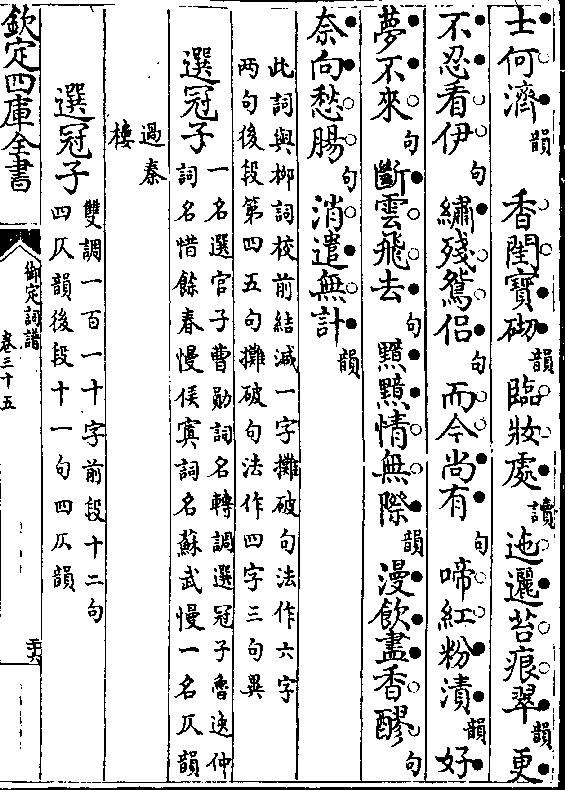 士何濟韻　香閨寶砌韻臨妝處讀迤邐苔痕翠韻更
不忍看伊句繡殘鴛侣句而今尚有句啼紅粉漬韻好
夢不來句斷雲飛去句黯黯情無際韻漫飲盡香醪句
奈向愁腸句消遣無計韻
此詞與柳詞校前結減一字攤破句法作六字
兩句後段第四五句攤破句法作四字三句異
選冠子
一名選官子曹勛詞名轉調選冠子魯逸仲
詞名惜餘春慢侯寘詞名蘇武慢一名仄韻
過秦
樓
選冠子
雙調一百一十字前段十二句
四仄韻後段十一句四仄韻
欽定四庫全書
御定詞譜
卷三十五